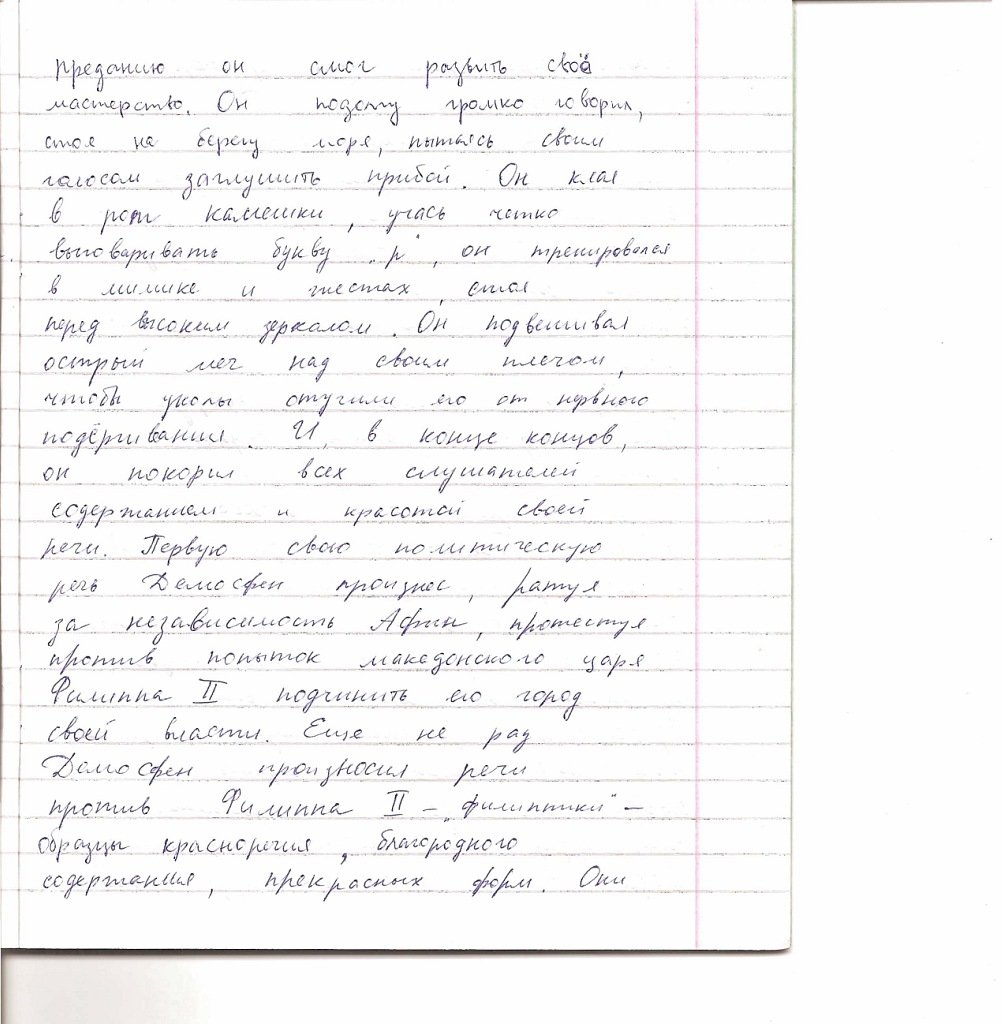 преданию он смог развить своё
мастерство. Он подолгу громко говорил,
стоя на берегу моря, пытаясь своим
голосом заглушить прибой. Он клал
в рот камешки, учась четко
выговаривать букву „р", он тренировался
в мимике и жестах, стоя
перед высоким зеркалом. Он подвешивал
острый меч над своим плечом,
чтобы уколы отучили его от нервного
подёргивания. И, в конце концов,
он покорил всех слушателей
содержанием и красотой своей
речи. Первую свою политическую
речь Демосфен произнес, ратуя
за независимость Афин, протестуя
против попыток македонского царя
Филиппа II подчинить его город
своей власти. Еще не раз
Демосфен произносил речи
против Филиппа II – „филиппики" –
образцы красноречия, благородного
содержания, прекрасных форм. Они